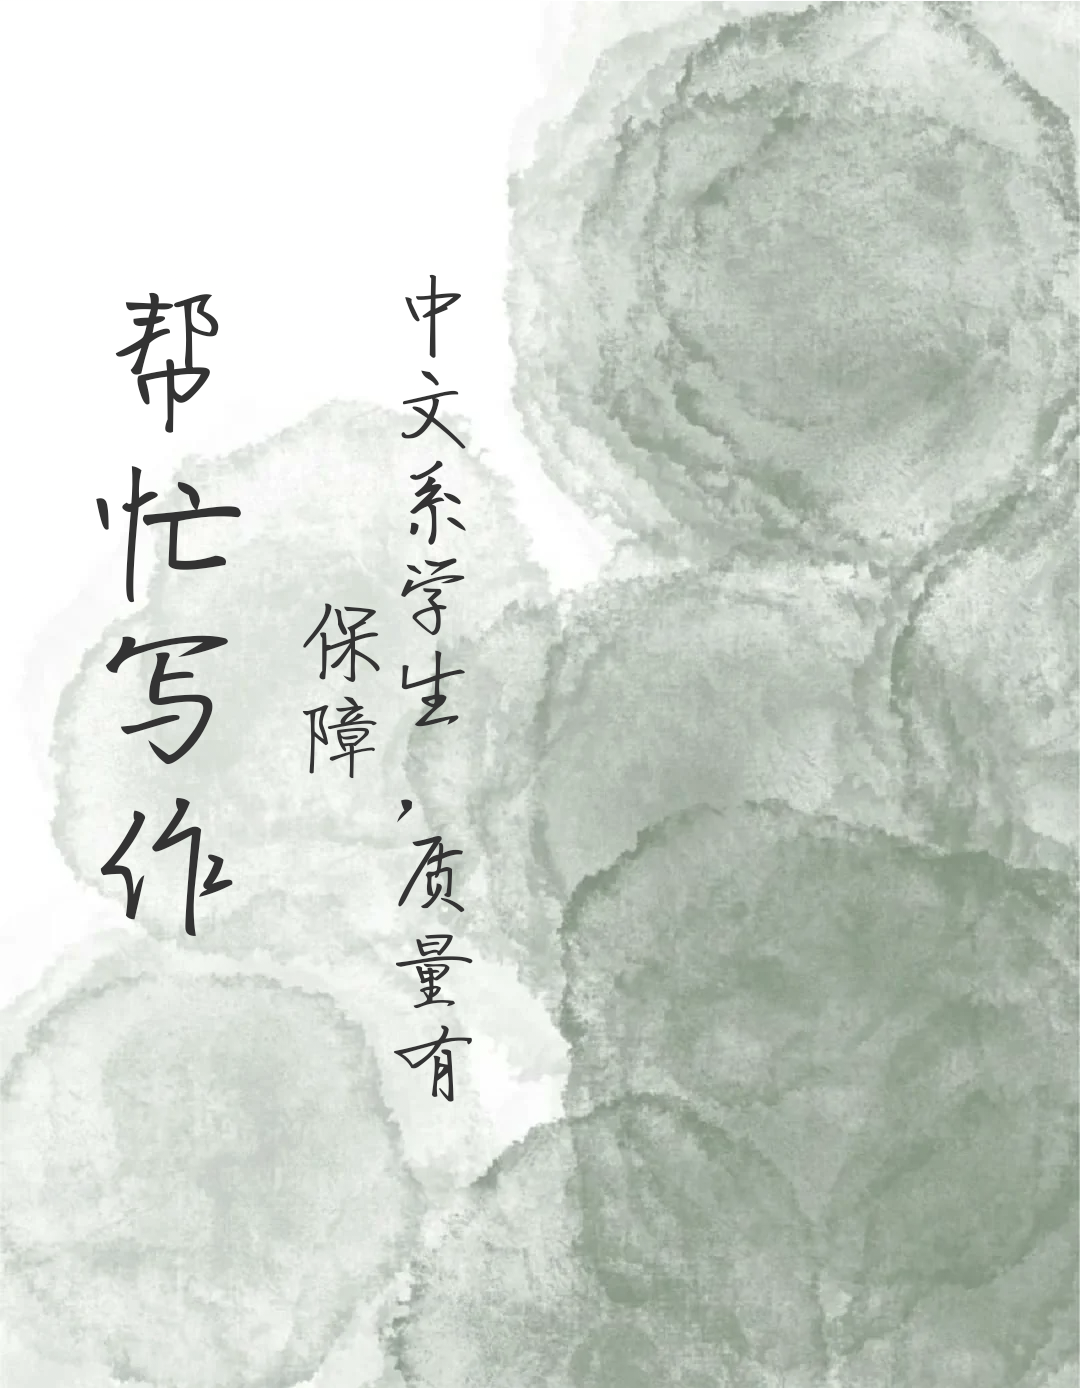 中文系学生，质量有
保障
帮忙写作